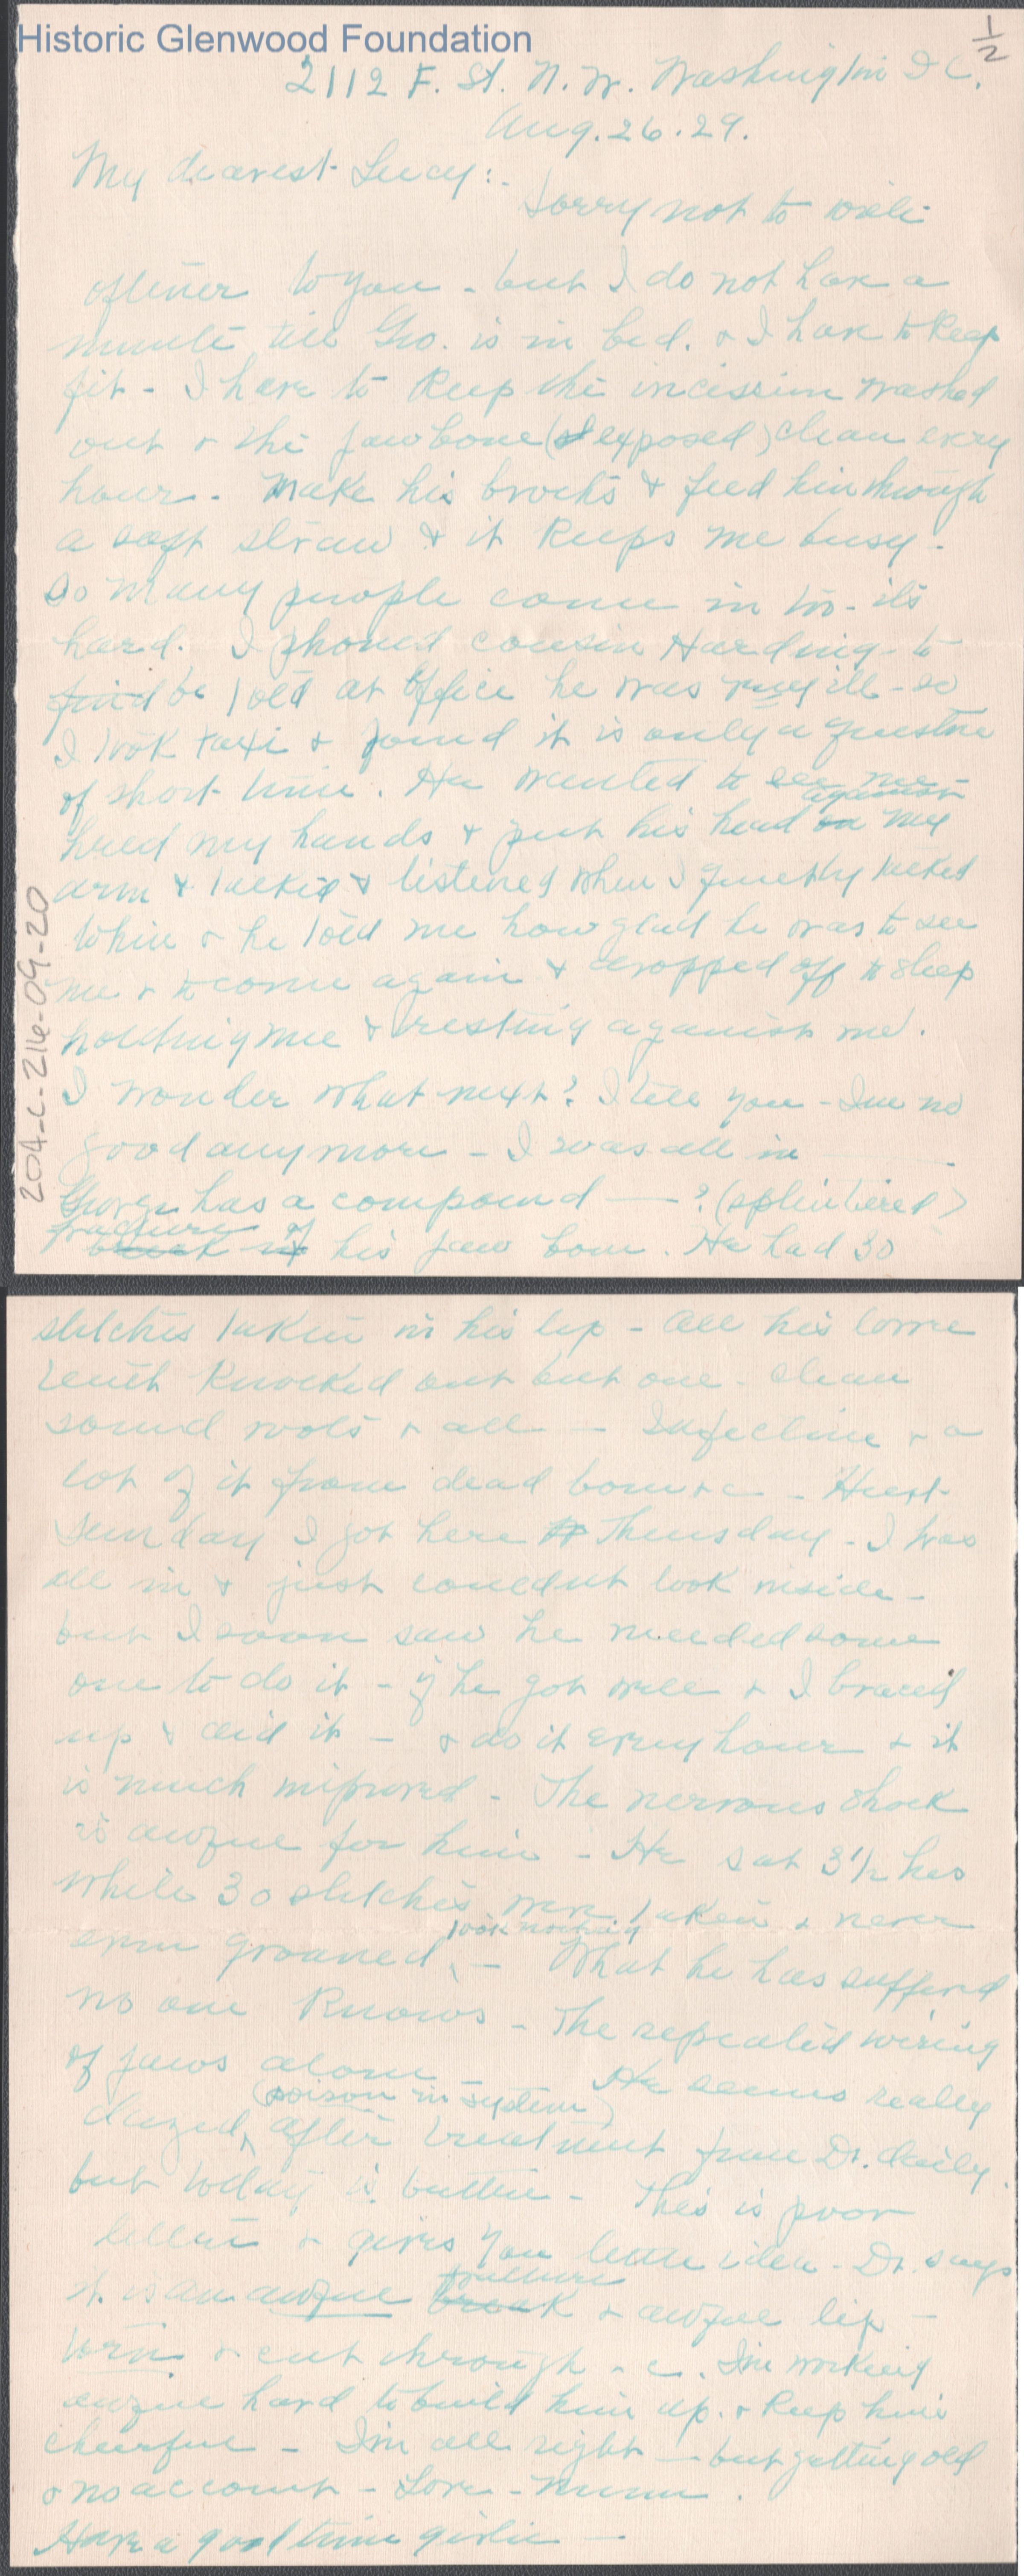 Historic Glenwood Foundation
1/2
2112 F. St. N.W. Washington D C.
Aug. 26. 29.
My dearest Lucy:-
Sorry not to write
oftener to you - but I do not have a
minute till Geo. is in bed. & I have to keep
fit - I have to keep the incission washed
out & the jaw bone (exposed) clean every
hour. Make his broths & feed him through
a soft straw & it keeps me busy -
So many people come in too - its
hard. I phoned cousin Harding - to
find be told at office he was very ill - so
I took taxi & found it is only a question
of short time. He wanted to see me -
held my hands & put his head on against my
arm & talked & listened when I quietly talked
to him & he told me how glad he was to see
me & to come again & dropped off to sleep
holding me & resting against me.
I wonder what next? I tell you - I'm no
good anymore - I was all in
George has a compound — ? (splintered)
fracture of
break in his jaw bone. He had 30
stitches taken in his lip - all his lower
teeth knocked out but one - clean
sound roots & all - Infection & a
lot of it from dead bone & c - Hurt
Sunday I got here Thursday - I was
all in & just couldnt look inside -
but I soon saw he needed some
one to do it - if he got well & I braced
up & did it - & do it every hour & it
is much improved - The nervous shock
is awful for him - He sat 3 1/2 hrs
while 30 stitches were taken & never
even groaned, took nothing - What he has suffered
no one knows - The repeated wiring
of jaws alone - He seems really
dazed, (poison in system) after treatment from Dr. daily.
but today is better - This is poor
letter & gives you little idea - Dr. says
it is an awful break fracture & awful lip -
torn & cut through - & c. I'm working
awful hard to build him up. & keep him
cheerful - I'm all right - but getting old
& no account - Love - Mum.
Have a good time girlie -
204-c-216-09-20